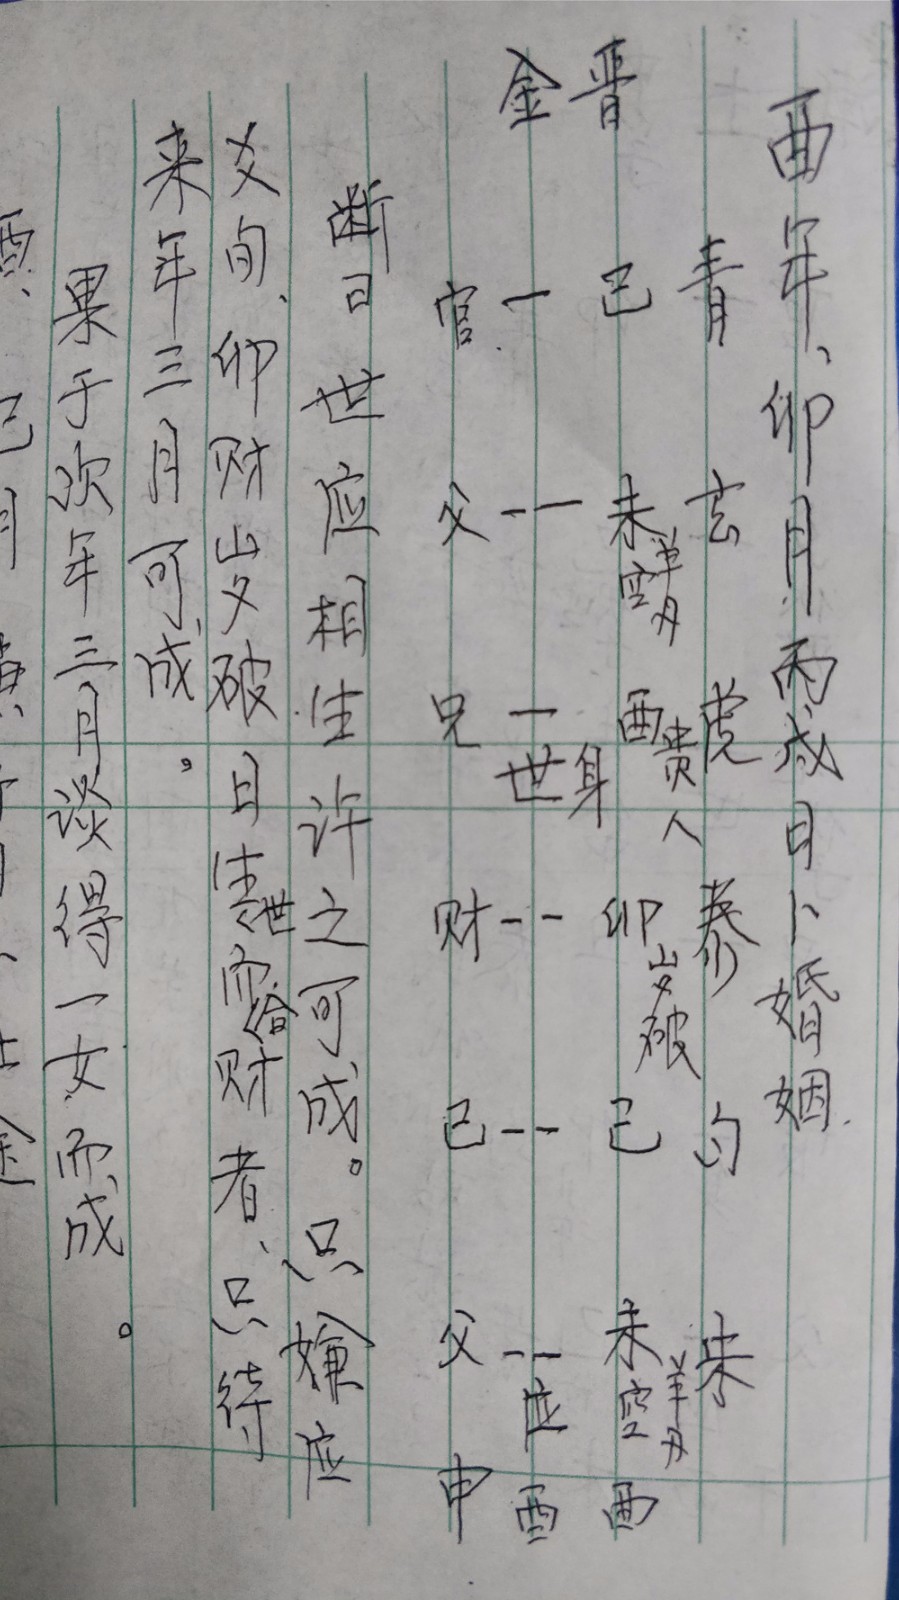 酉年、卯月丙戌日卜婚姻.
青 玄 虎 秦 勾 朱
晋 巳 未 空 羊刃 酉 贵人 卯 岁破 巳 未 空 羊刃 酉
金 一 -- 一 世身 -- -- -- 应 酉
官 父 兄 财 已 父 申
断曰世应相生许之可成。只嫌应
爻旬、卯财岁破日生世而合财者、只待
来年三月可成。
果于次年三月谈得一女而成。